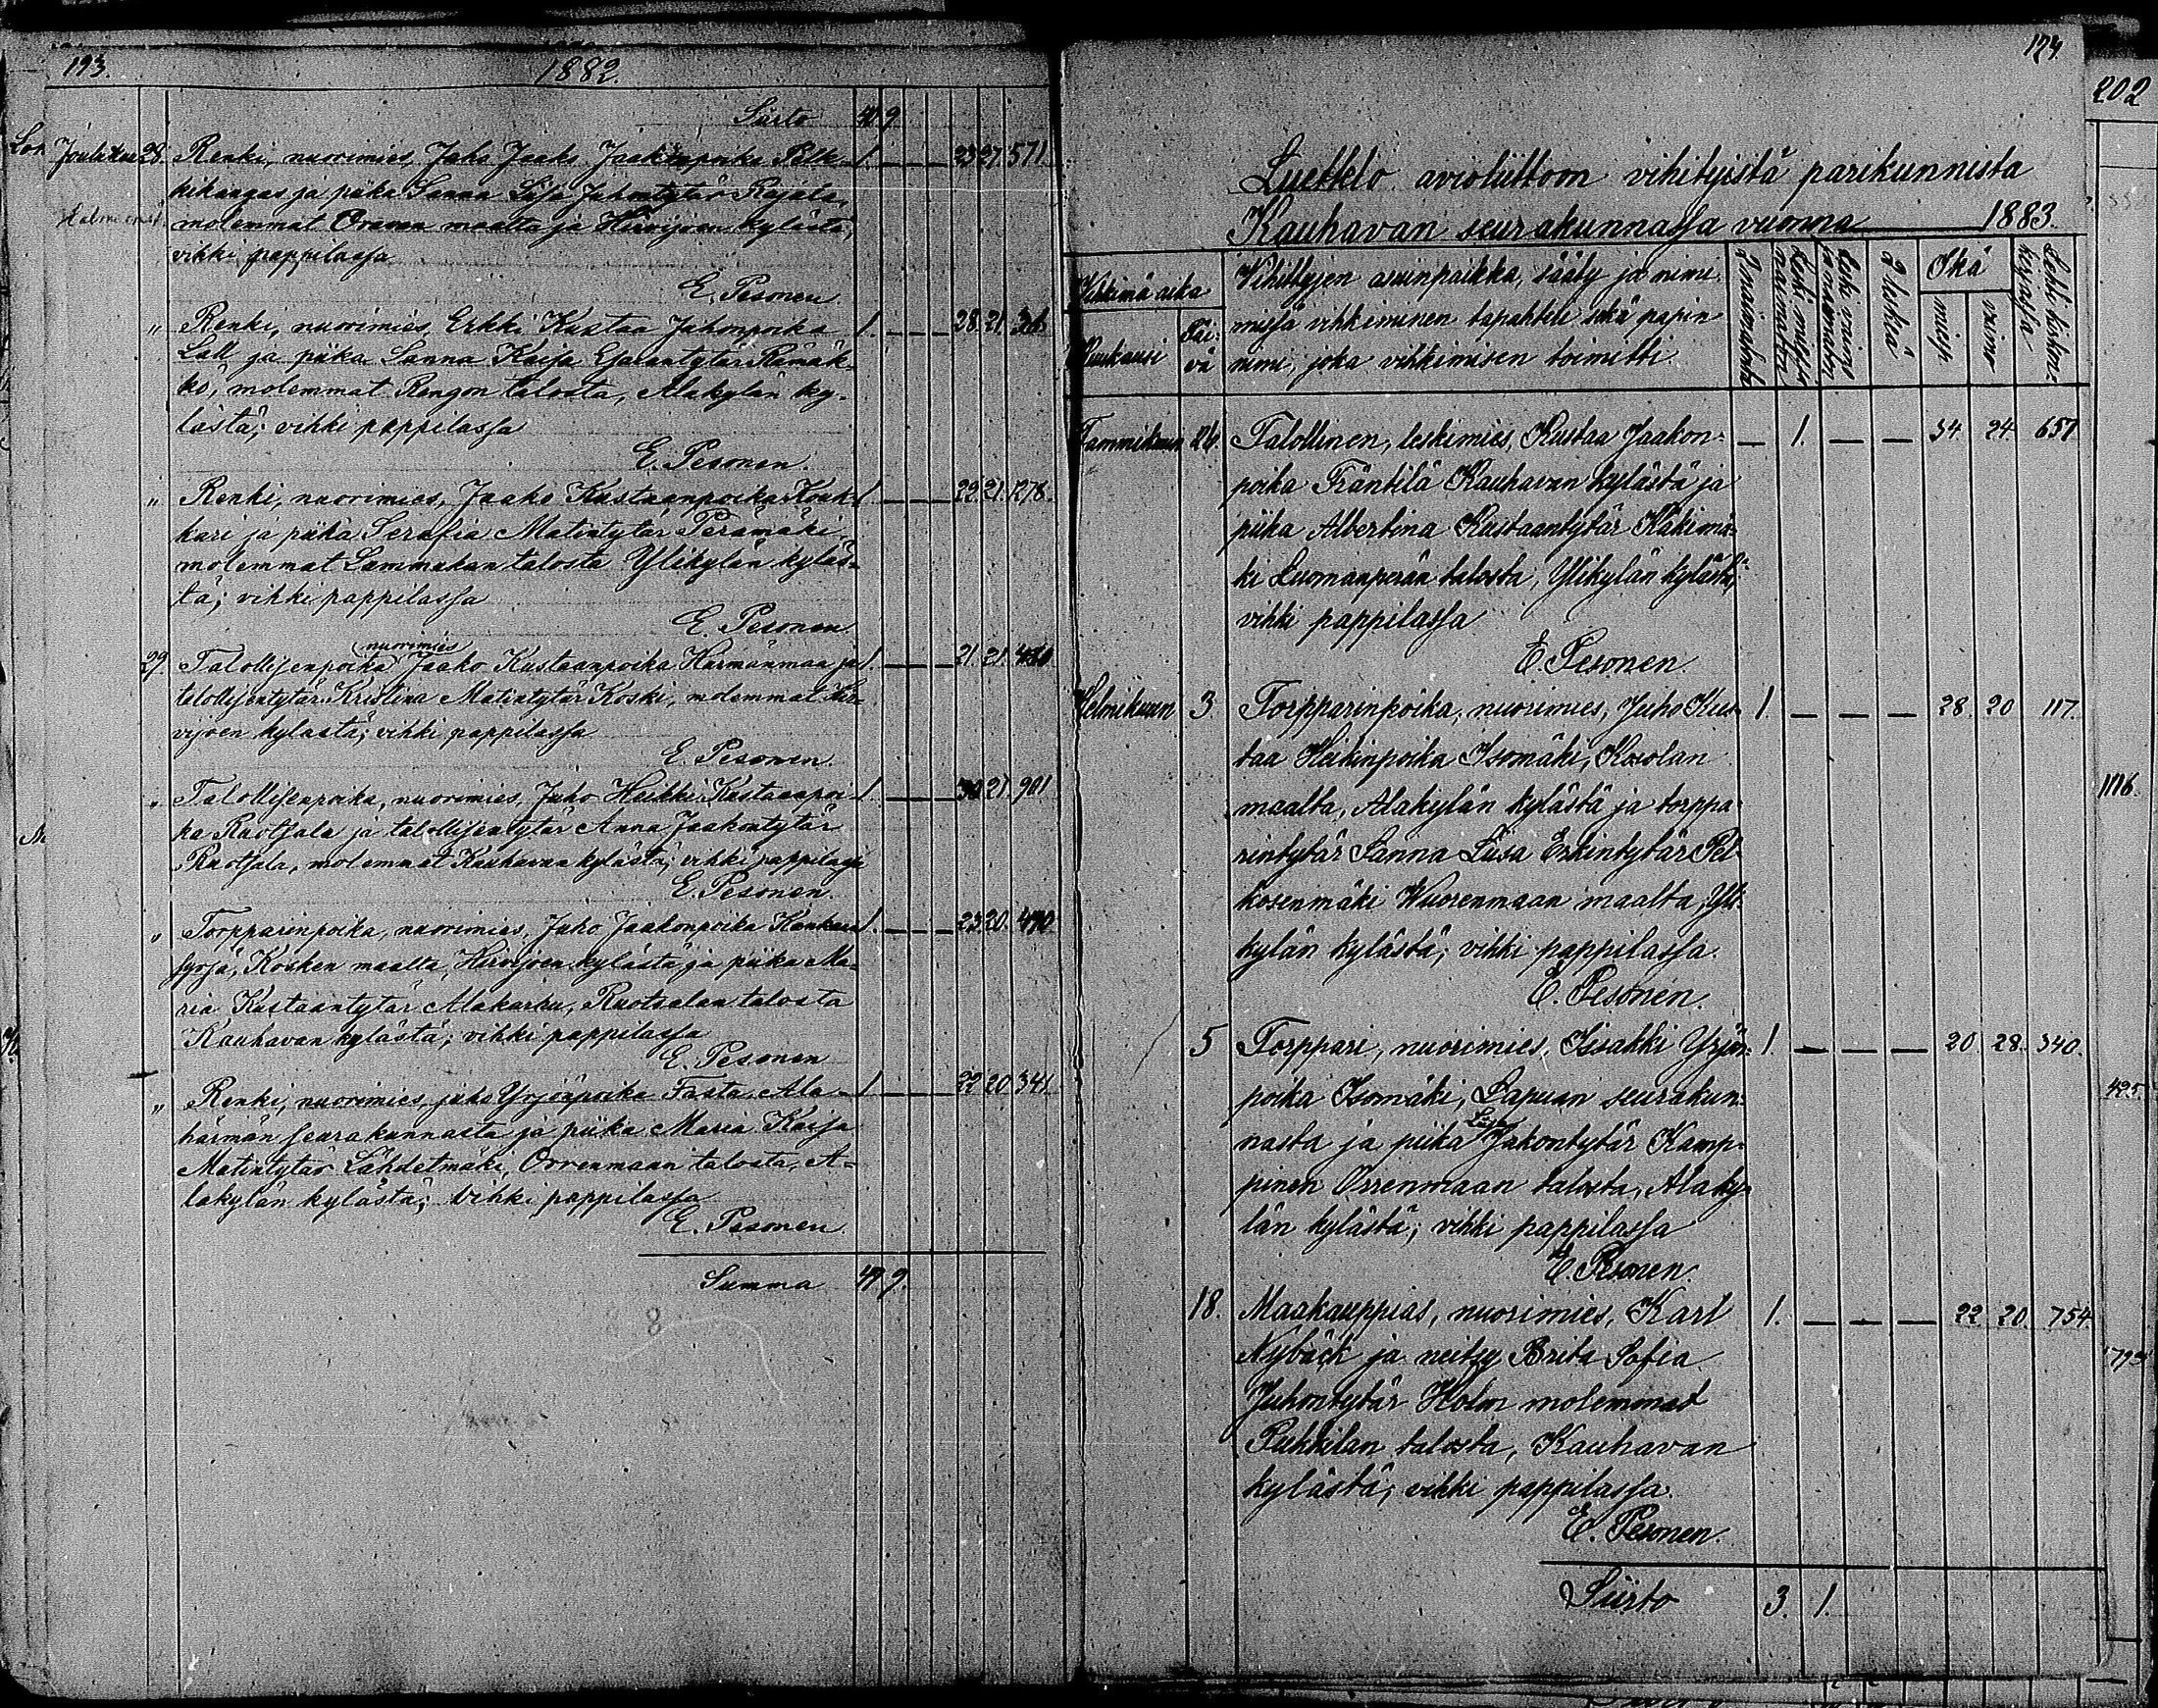 193.
1882.
Siirto 40. 9
Joulukuu 28. Renki, nuorimies, Juho Jaako Jaakonpoika Pelk- 1. — — — 23 27. 571
kikangas ja piika Sanna Liisa Juhontytär Rajala,
molemmat Oravan maalta ja Hirvijoen kylästä,
vihki pappilassa
E. Pesonen.
" Renki, nuorimies, Erkki Kustaa Juhonpoika 1. — — — 28. 21.
Lall ja piika Sanna Kaisa Esaiantytär Rämäk-
kö, molemmat Rengon talosta, Alakylän ky-
lästä; vihki pappilassa
E. Pesonen.
" Renki, nuorimies, Jaako Kustaanpoika Kouk- 1 — — — 22. 21. 1278.
kari ja piika Serafia Matintytär Perämäki
molemmat Lammukan talosta Ylikylän kyläs-
tä; vihki pappilassa
E. Pesonen
nuorimies
29. Talollisenpoika Jaako Kustaanpoika Härmänmaa ja 1. — — — 21. 21.
talollisentytär Kristina Matintytär Koski, molemmat Hir-
vijoen kylästä; vihki pappilassa
E. Pesonen.
" Talollisenpoika, nuorimies, Juho Heikki Kustaanpoi- 1. — — — 30 21. 901
ka Ruotsala ja talollisentytär Anna Jaakontytär
Ruotsala, molemmat Kauhavan kylästä; vihki pappilassa
E. Pesonen.
" Torpparinpoika, nuorimies, Juho Jaakonpoika Kankaan 1. — — — 23 20. 470
syrjä, Kosken maalta, Hirvijoen kylästä ja piika Ma-
ria Kustaantytär Alakarhu, Ruotsalan talosta
Kauhavan kylästä; vihki pappilassa
E. Pesonen
" Renki, nuorimies, juho Yrjönpoika Fasta, Ala- 1. — — — 22 20. 341.
härmän seurakunnasta ja piika Maria Kaisa
Matintytär Lähdetmäki, Orrenmaan talosta, A-
lakylän kylästä; vihki pappilassa
E. Pesonen.
Summa 47 9.
8
174.
Luettelo avioliittoon vihityistä parikunnista
Kauhavan seurakunnassa vuonna 1883.
Vihkimä aika
Kuukausi
Päi-
vä
Vihittyjen asuinpaikka, sääty ja nimi
missä vihkiminen tapahtui sekä papin
nimi, joka vihkimisen toimitti.
2 naimatonta
Leski mies ja
naimaton
Leski vaimo
ja naimaton
2 leskeä
Ikä
miesi
vaimo
Lehti kirkon-
kirjassa
Tammikuun 26. Talollinen, leskimies, Kustaa Jaakon- — 1. — — 34. 24. 657
poika Fräntilä Kauhavan kylästä ja
piika Albertina Kustaantytär Käkimä-
ki Luomanperän talosta, Ylikylän kylästä;
vihki pappilassa
E. Pesonen.
Helmikuun 3. Torpparinpoika, nuorimies, Juho Kus- 1. — — — 28. 20 117.
taa Heikinpoika Isomäki, Kosolan
maalta, Alakylän kylästä ja torppa-
rintytär Sanna Liisa Erkintytär Pel-
kosenmäki Wuorenmaan maalta, Yli-
kylän kylästä; vihki pappilassa.
E. Pesonen.
5 Torppari, nuorimies, Iisakki Yrjön- 1. — — — 20. 28. 340.
poika Isomäki, Lapuan seurakun-
Liisa
nasta ja piika Jakontytär Kamp-
pinen Orrenmaan talosta, Alaky-
län kylästä; vihki pappilassa
E. Pesonen.
18. Maakauppias, nuorimies, Karl 1. — — — 22 20. 754.
Nybäck ja neitsy Brita Sofia
Juhontytär Holm molemmat
Puhkilan talosta, Kauhavan
kylästä; vihki pappilassa.
E. Pesonen.
Siirto 3. 1.
202
1176.
425.